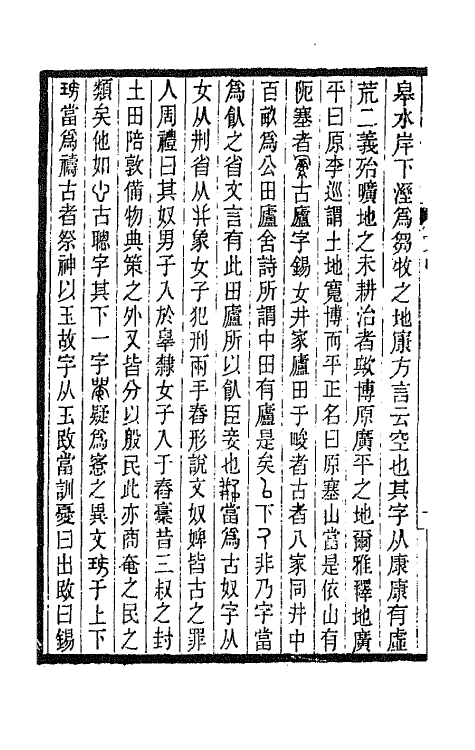 皋水岸下溼爲芻牧之地康方言云空也其字从康康有虛
荒二義殆曠地之未耕治者歟博原廣平之地爾雅釋地廣
平曰原李巡謂土地寬博而平正名曰原塞山當是依山有
阨塞者古廬字錫女井家廬田于畯者古者八家同井中
百畝爲公田廬舍詩所謂中田有廬是矣下非乃字當
爲飤之省文言有此田廬所以飤臣妾也當爲古奴字从
女从刑省从廾象女子犯刑兩手舂形說文奴婢皆古之罪
人周禮曰其奴男子入於皋隸女子入于舂稾昔三叔之封
土田陪敦備物典策之外又皆分以殷民此亦商奄之民之
類矣他如古聰字其下一字疑爲窻之異文于上下
當爲禱古者祭神以玉故字从玉㪅當訓憂曰出㪅曰錫